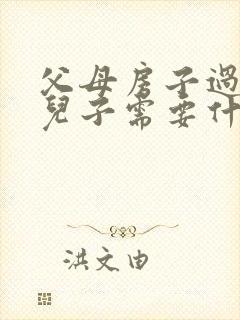 父母房子過
兒子需要什
洪文由